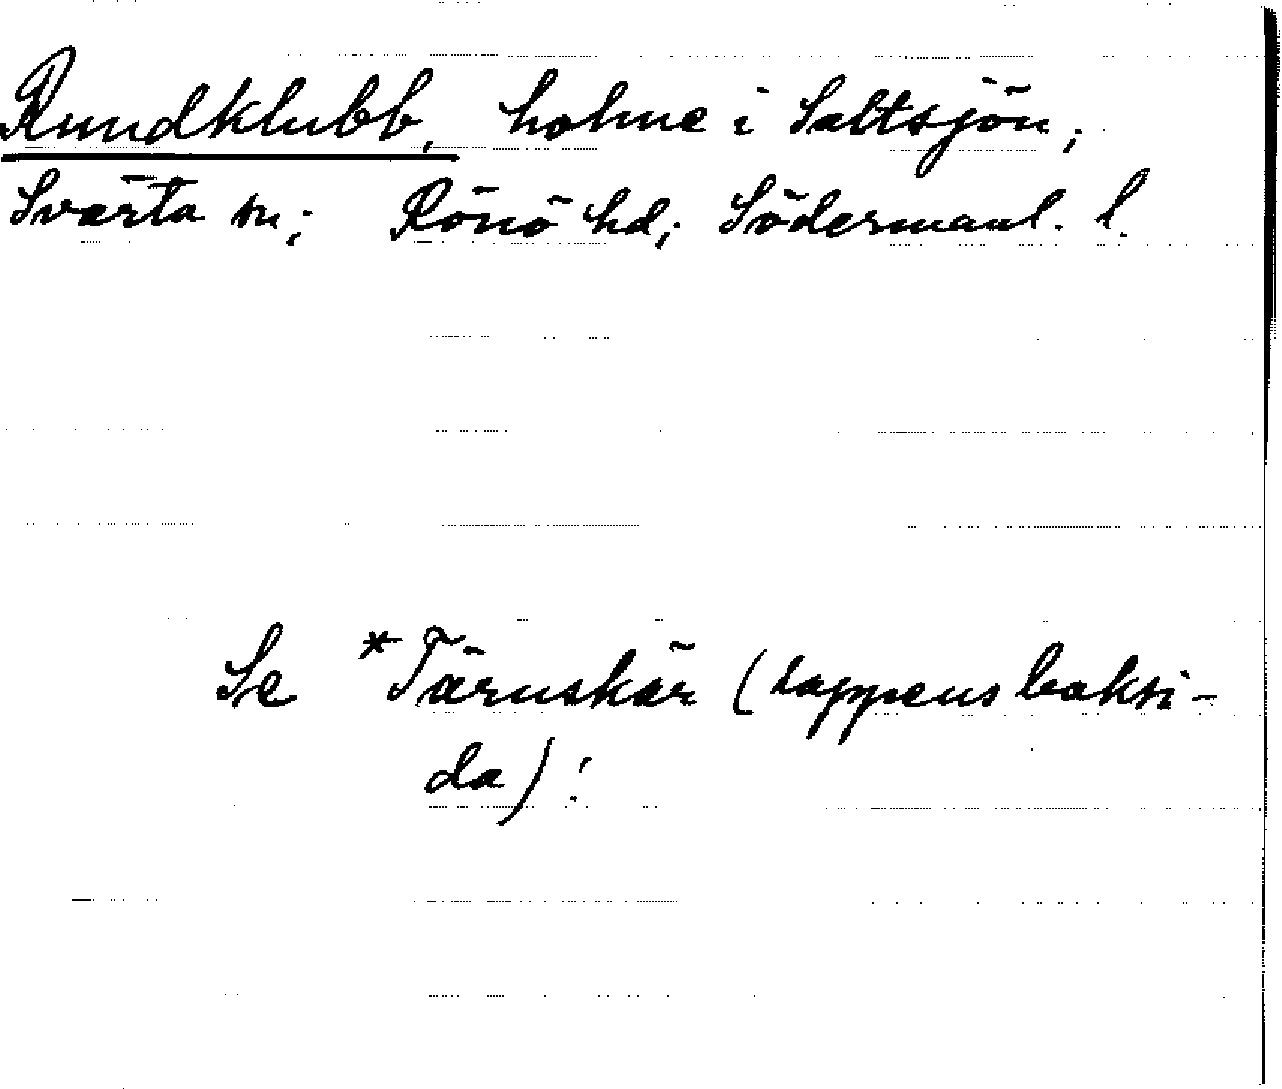 Rundklubb, holme i Saltsjön;
Svärta sn; Rönö hd; Södermanl. l.
Se *Tärnskär (lappens baksi-
da)!